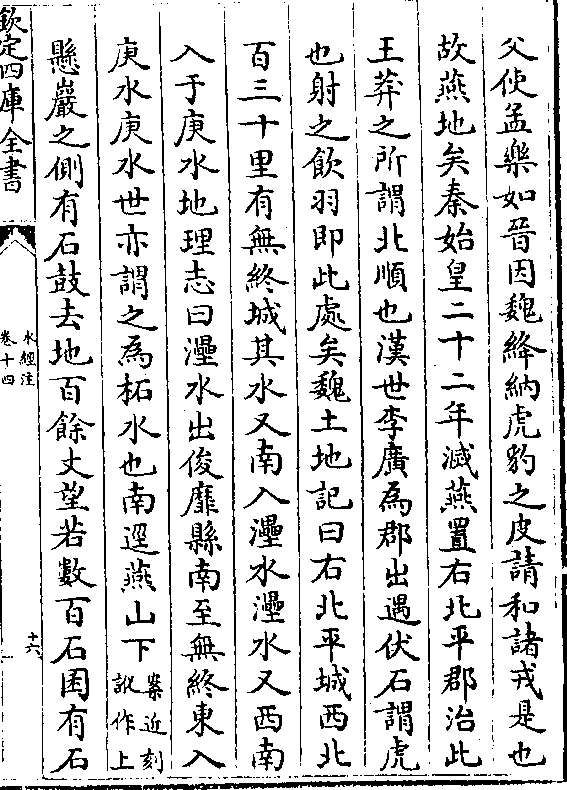 父使孟樂如晉因魏絳納虎豹之皮請和諸戎是也
故燕地矣秦始皇二十二年滅燕置右北平郡治此
王莽之所謂北順也漢世李廣為郡出遇伏石謂虎
也射之飲羽即此處矣魏土地記曰右北平城西北
百三十里有無終城其水又南入灅水灅水又西南
入于庚水地理志曰灅水出俊靡縣南至無終東入
庚水庚水世亦謂之為柘水也南逕燕山下案近刻訛作上
懸巖之側有石鼓去地百餘丈望若數百石囷有石
欽定四庫全書
水經注
卷十四
十六